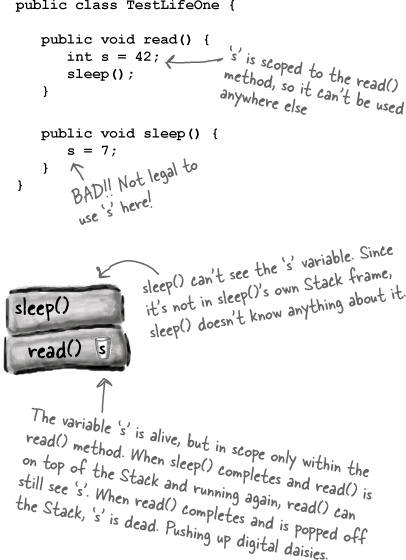 public class TestLifeOne {
public void read() {
int s = 42;
sleep();
}
's' is scoped to the read()
method, so it can't be used
anywhere else
public void sleep() {
s = 7;
}
}
BAD!! Not legal to
use 's' here!
sleep() can't see the 's' variable. Since
it's not in sleep()'s own Stack frame,
sleep() doesn't know anything about it.
sleep()
read() s
The variable 's' is alive, but in scope only within the
read() method. When sleep() completes and read() is
on top of the Stack and running again, read() can
still see 's'. When read() completes and is popped off
the Stack, 's' is dead. Pushing up digital daisies.